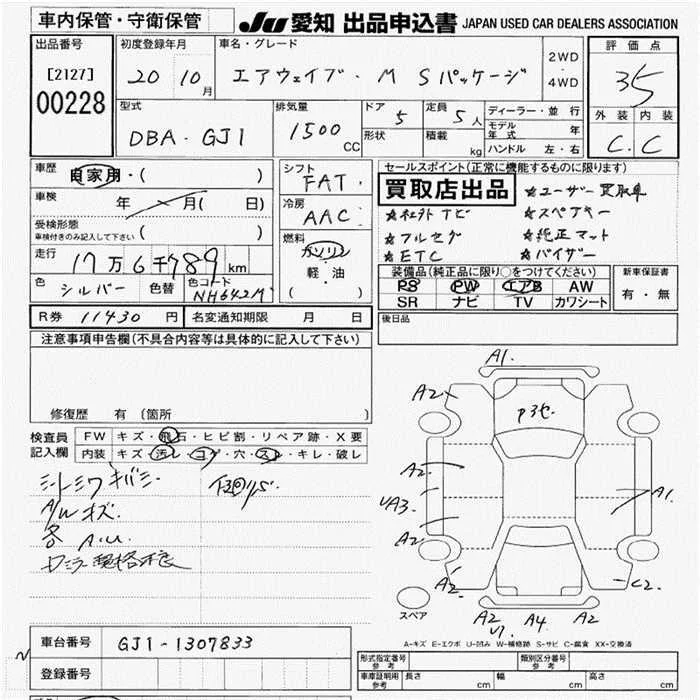 車内保管・守衛保管
JU 愛知 出品申込書 JAPAN USED CAR DEALERS ASSOCIATION
出品番号
[2127]
00228
初度登録年月
20 10月
車名・グレード
エアウェイブ・M Sパッケージ
2WD
・
4WD
評価点
3.5
外装 内装
C. C
型式
DBA - GJ1
排気量
1500 CC
ドア
5
形状
定員
5人
積載
kg
ディーラー・並行
モデル年式 年
ハンドル 左・右
車歴
自家用・( )
車検
年 月( 日)
受検形態
車検付きのみ記入して下さい ( )
走行
17万6千789km
色
シルバー
色替
色コード
NH642M
シフト
FAT
冷房
AAC
燃料
ガソリン
軽・油
( )
セールスポイント(正常に機能するものに限ります)
買取店出品
☆ユーザー買取車
☆社外ナビ
☆スペアキー
☆フルセグ
☆純正マット
☆ETC
☆バイザー
装備品(純正品に限り○をつけてください)
PS PW エアB AW
SR ナビ TV カワシート
新車保証書
有・無
R券 11430 円
名変通知期限 月 日
後日品
注意事項申告欄(不具合内容等は具体的に記入して下さい)
修復歴 有 (箇所 )
検査員
記入欄
FW キズ・飛石・ヒビ割・リペア跡・X要
内装 キズ・汚レ・コゲ・穴・スレ・キレ・破レ
シートシワ キバミ
A/W キズ
各 A.U.
下回りS
A1.
A2
P3セ
A2
UA3.
A2
A1.
A2
C2.
スペア
A2
U1
A4
A2
A-キズ E-エクボ U-凹み W-補修跡 S-サビ C-腐食 XX-交換済
車台番号 GJ1-1307833
登録番号
形式指定番号
参考
類別区分番号
参考
車庫証明用
参考
長さ cm
幅 cm
高さ cm